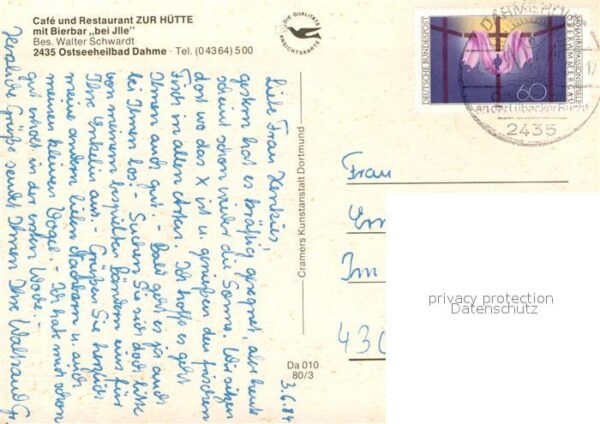 Café und Restaurant ZUR HÜTTE
mit Bierbar „bei Jlle"
Bes. Walter Schwardt
2435 Ostseeheilbad Dahme · Tel. (04364) 500
DIE QUALITÄTS
ANSICHTSKARTE
3.6.84
Liebe Frau
gestern hat es kräftig geregnet, aber heute
scheint schon wieder die Sonne. Wir sitzen
dort wo das X ist u. genießen den frischen
Fisch in allen Arten. Ich hoffe es geht
Ihnen auch gut. - Bald geht es ja auch
bei Ihnen los! - Suchen Sie sich doch bitte
von meinen bespielten Bändern eins für
Ihre Enkelin aus. - Grüßen Sie herzlich
meine andern lieben Nachbarn u. auch
meinen kleinen Vogel. - Ich hab mich schon
gut erholt in der ersten Woche. -
Herzliche Grüße sendet Ihnen Ihre Waltraud
Cramers Kunstanstalt Dortmund
Da 010
80/3
DEUTSCHE BUNDESPOST
60
DAHME
OSTSEE
2435
Frau
Im
430
privacy protection
Datenschutz